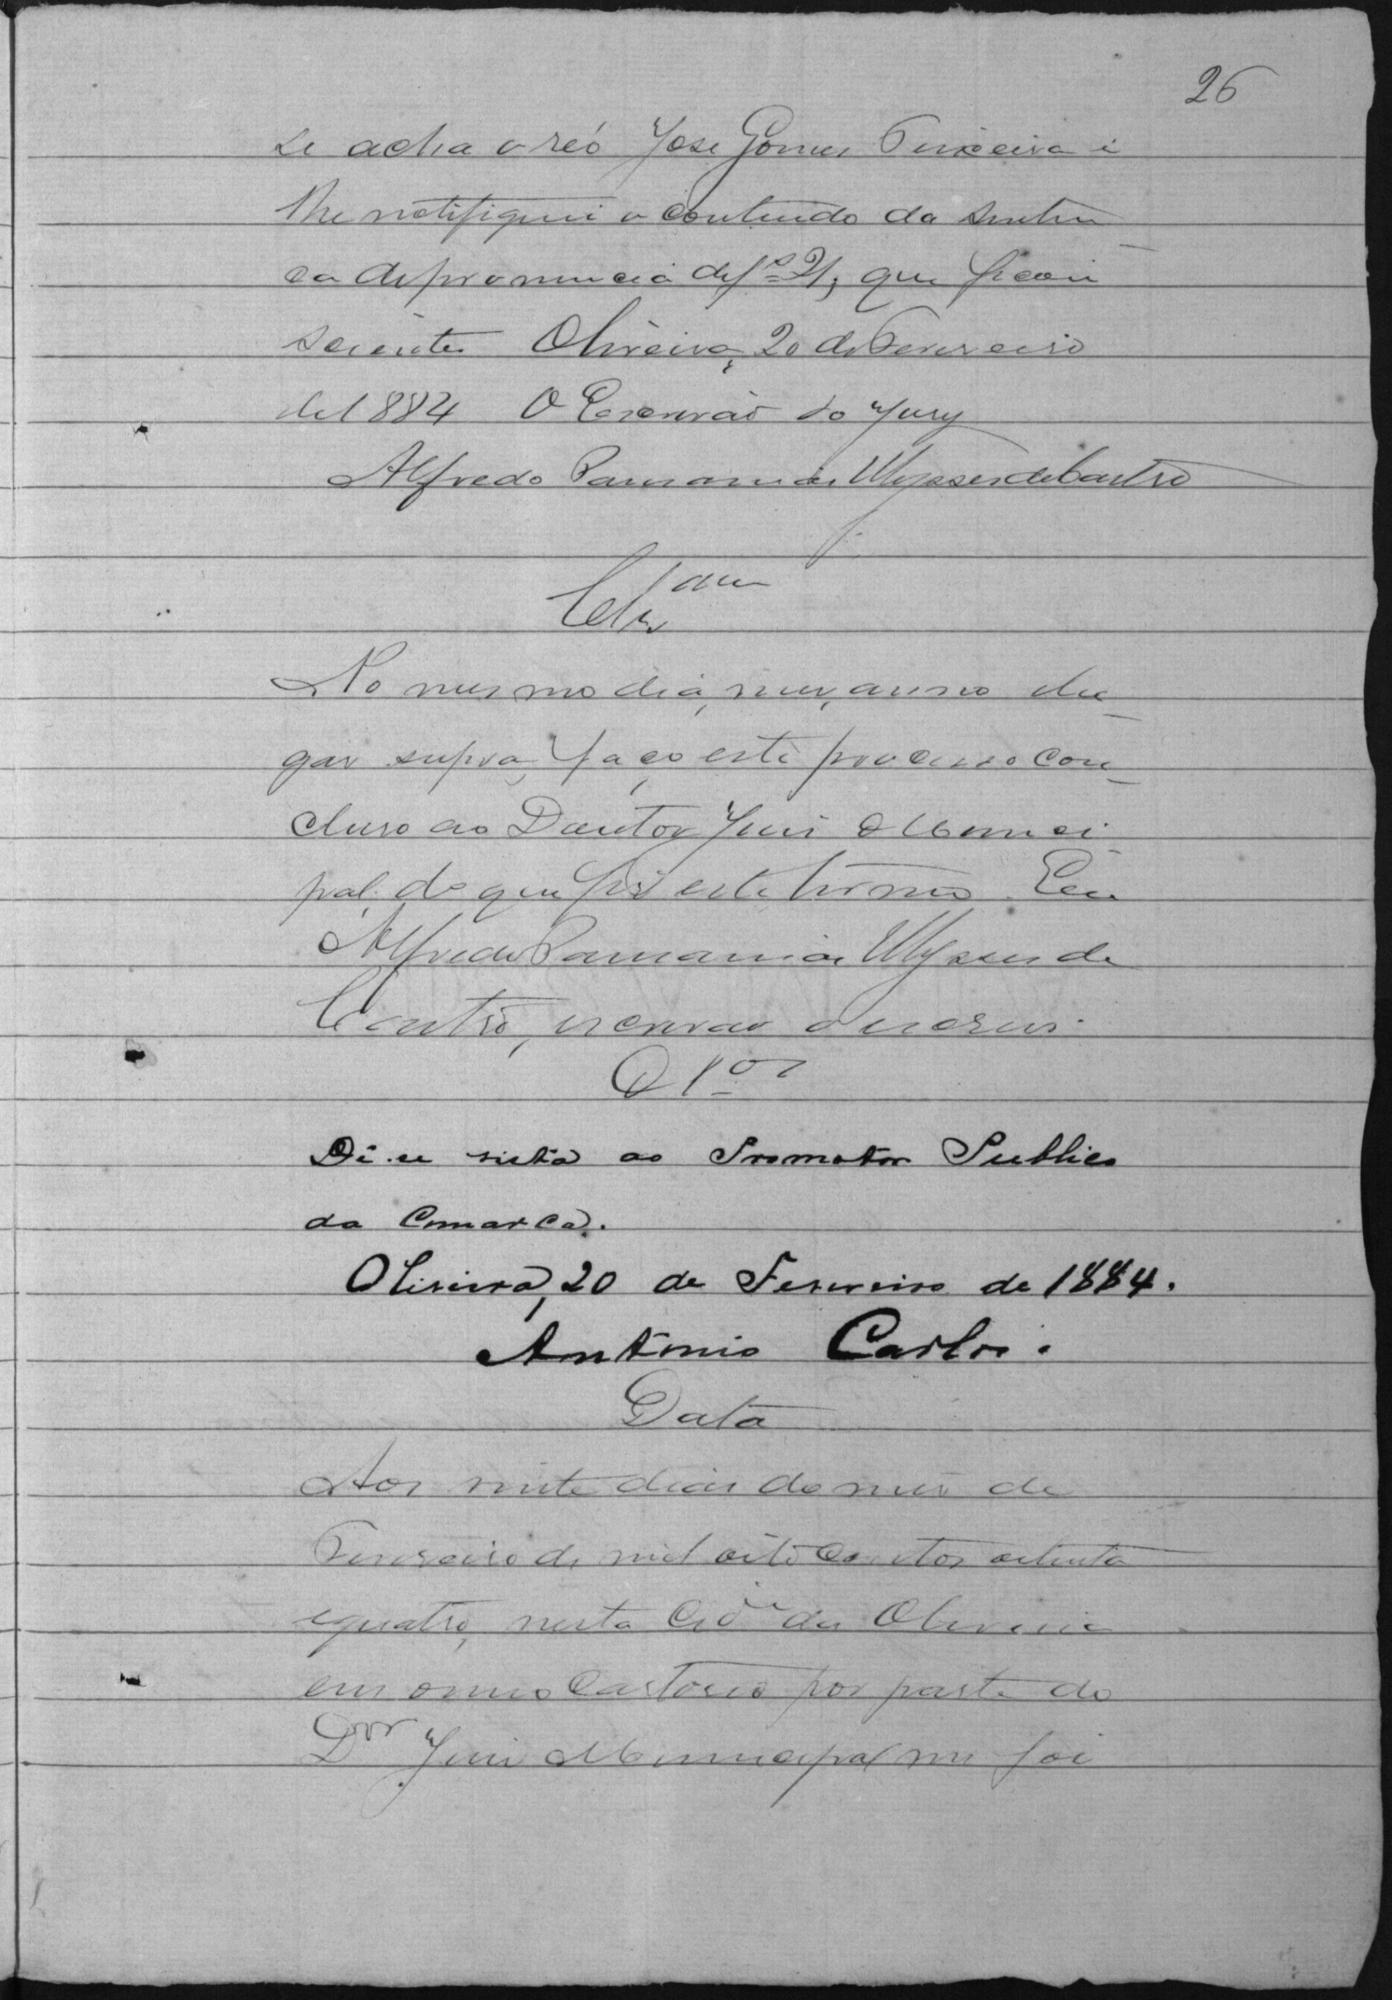 26
se acha o réo José Gomes Teixeira e
lhe notifiquei o conteudo da senten
ça de pronuncia de fs 21, que ficou
sciente. Oliveira, 20 de Fevereiro
de 1884 O Escrivão do Jury
Alfredo Ulysses de Castro
Clsam
No mesmo dia, mez, anno e lu
gar supra, faço este processo con
cluso ao Doutor Juiz Munici
pal, do que fiz este termo. Eu
Alfredo Ulysses de
Castro, escrivão o escrevi.
Clos
Dê-se vista ao Promotor Publico
da Comarca.
Oliveira, 20 de Fevereiro de 1884.
Antonio Carlos.
Data
Aos vinte dias do mez de
Fevereiro de mil oito centos oitenta
e quatro, nesta Cide de Oliveira
em o meo Cartorio por parte do
Dor Juiz Municipal me foi